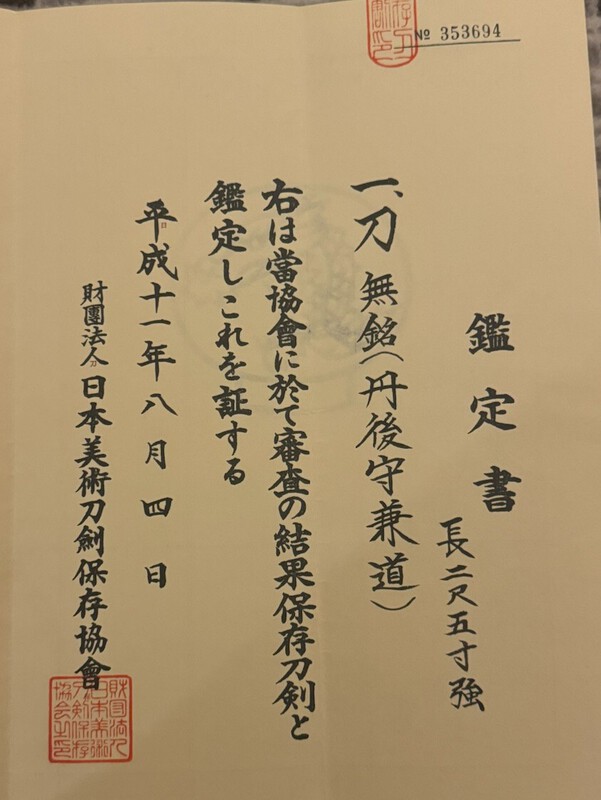 № 353694
鑑定書
長二尺五寸強
一、刀 無銘(丹後守兼道)
右は當協會に於て審査の結果保存刀剣と
鑑定しこれを証する
平成十一年八月四日
財團法人日本美術刀剣保存協會
財団法人
日本美術
刀剣保存
協会之印